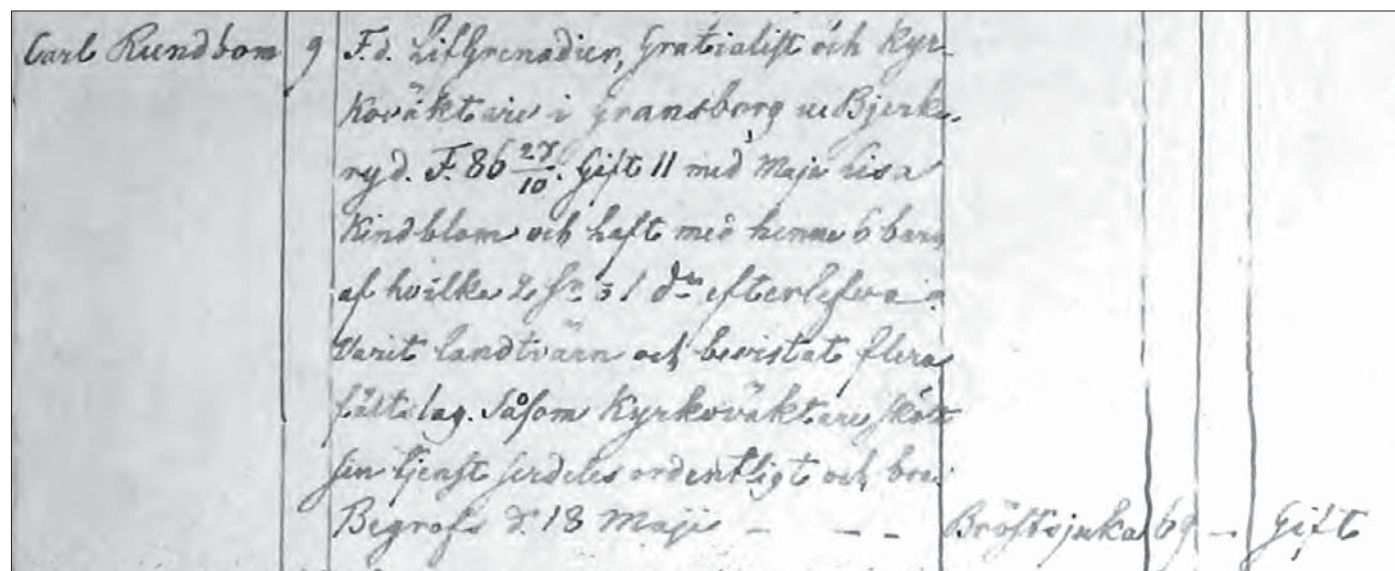 Carl Rundbom 9 F.d. Lifgrenadier, Gratialist och Kyr-
koväktare i Gransborg u Bjerka-
ryd. F. 86 27/10. Gift 11 med Maja Lisa
Kindblom och haft med henne 6 barn
af hvilka 2 sr 1 dr efterlefva.
Varit landtvärn och bevistat flera
fältslag. Såsom Kyrkoväktare skött
sin tjenst serdeles ordentligt och bra.
Begrofs d. 18 Maji - - - Bröstsjuka 69 - Gift